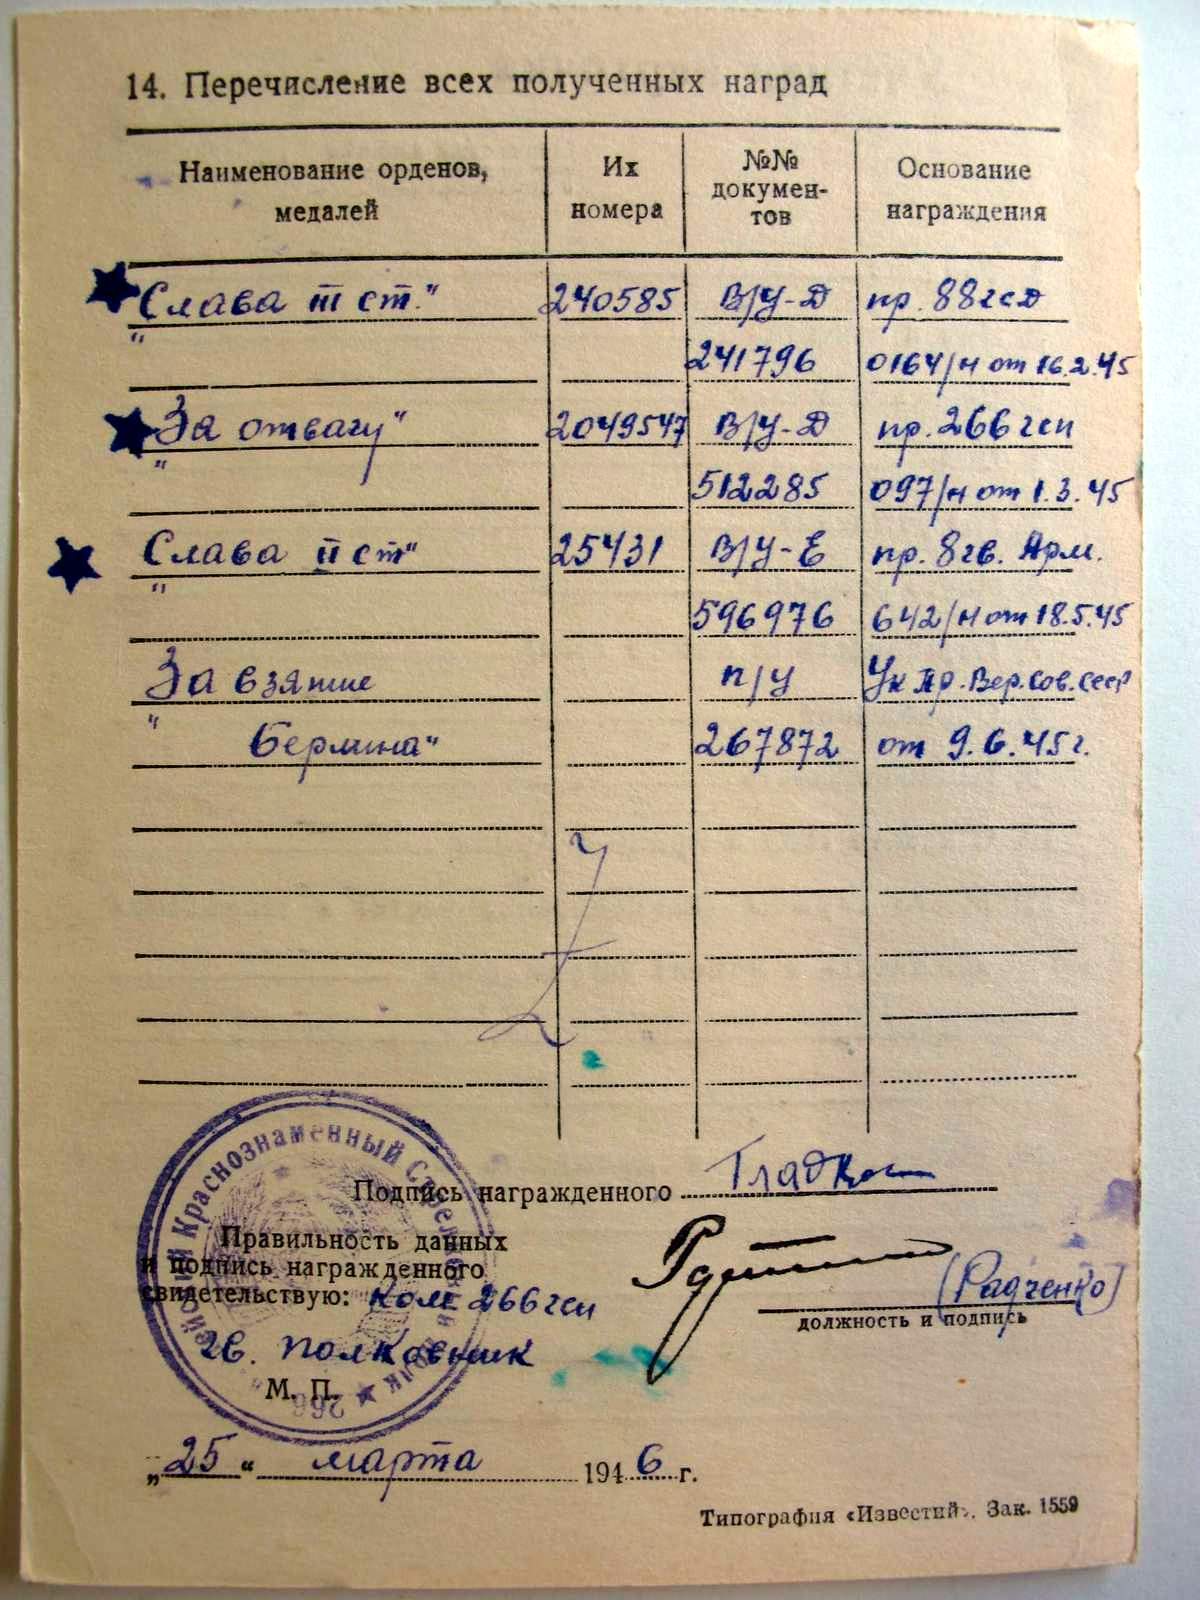 14. Перечисление всех полученных наград
Наименование орденов, медалей
Их номера
№№ докумен-тов
Основание награждения
„Слава III ст." 240585 В/У-Д пр. 88 гсд
241796 0164/н от 16.2.45
„За отвагу" 2049547 В/У-Д пр. 266 гсп
512285 097/н от 1.3.45
„Слава II ст" 25431 В/У-Е пр. 8 гв. Арм.
596976 642/н от 18.5.45
„За взятие п/у Ук Пр. Вер. Сов. СССР
Берлина" 267872 от 9.6.45 г.
Подпись награжденного
Правильность данных
и подпись награжденного
свидетельствую: ком 266 гсп
(Радченко)
должность и подпись
гв. полковник
М. П.
Краснознаменный
266
„25" марта 1946 г.
Типография «Известий». Зак. 1559